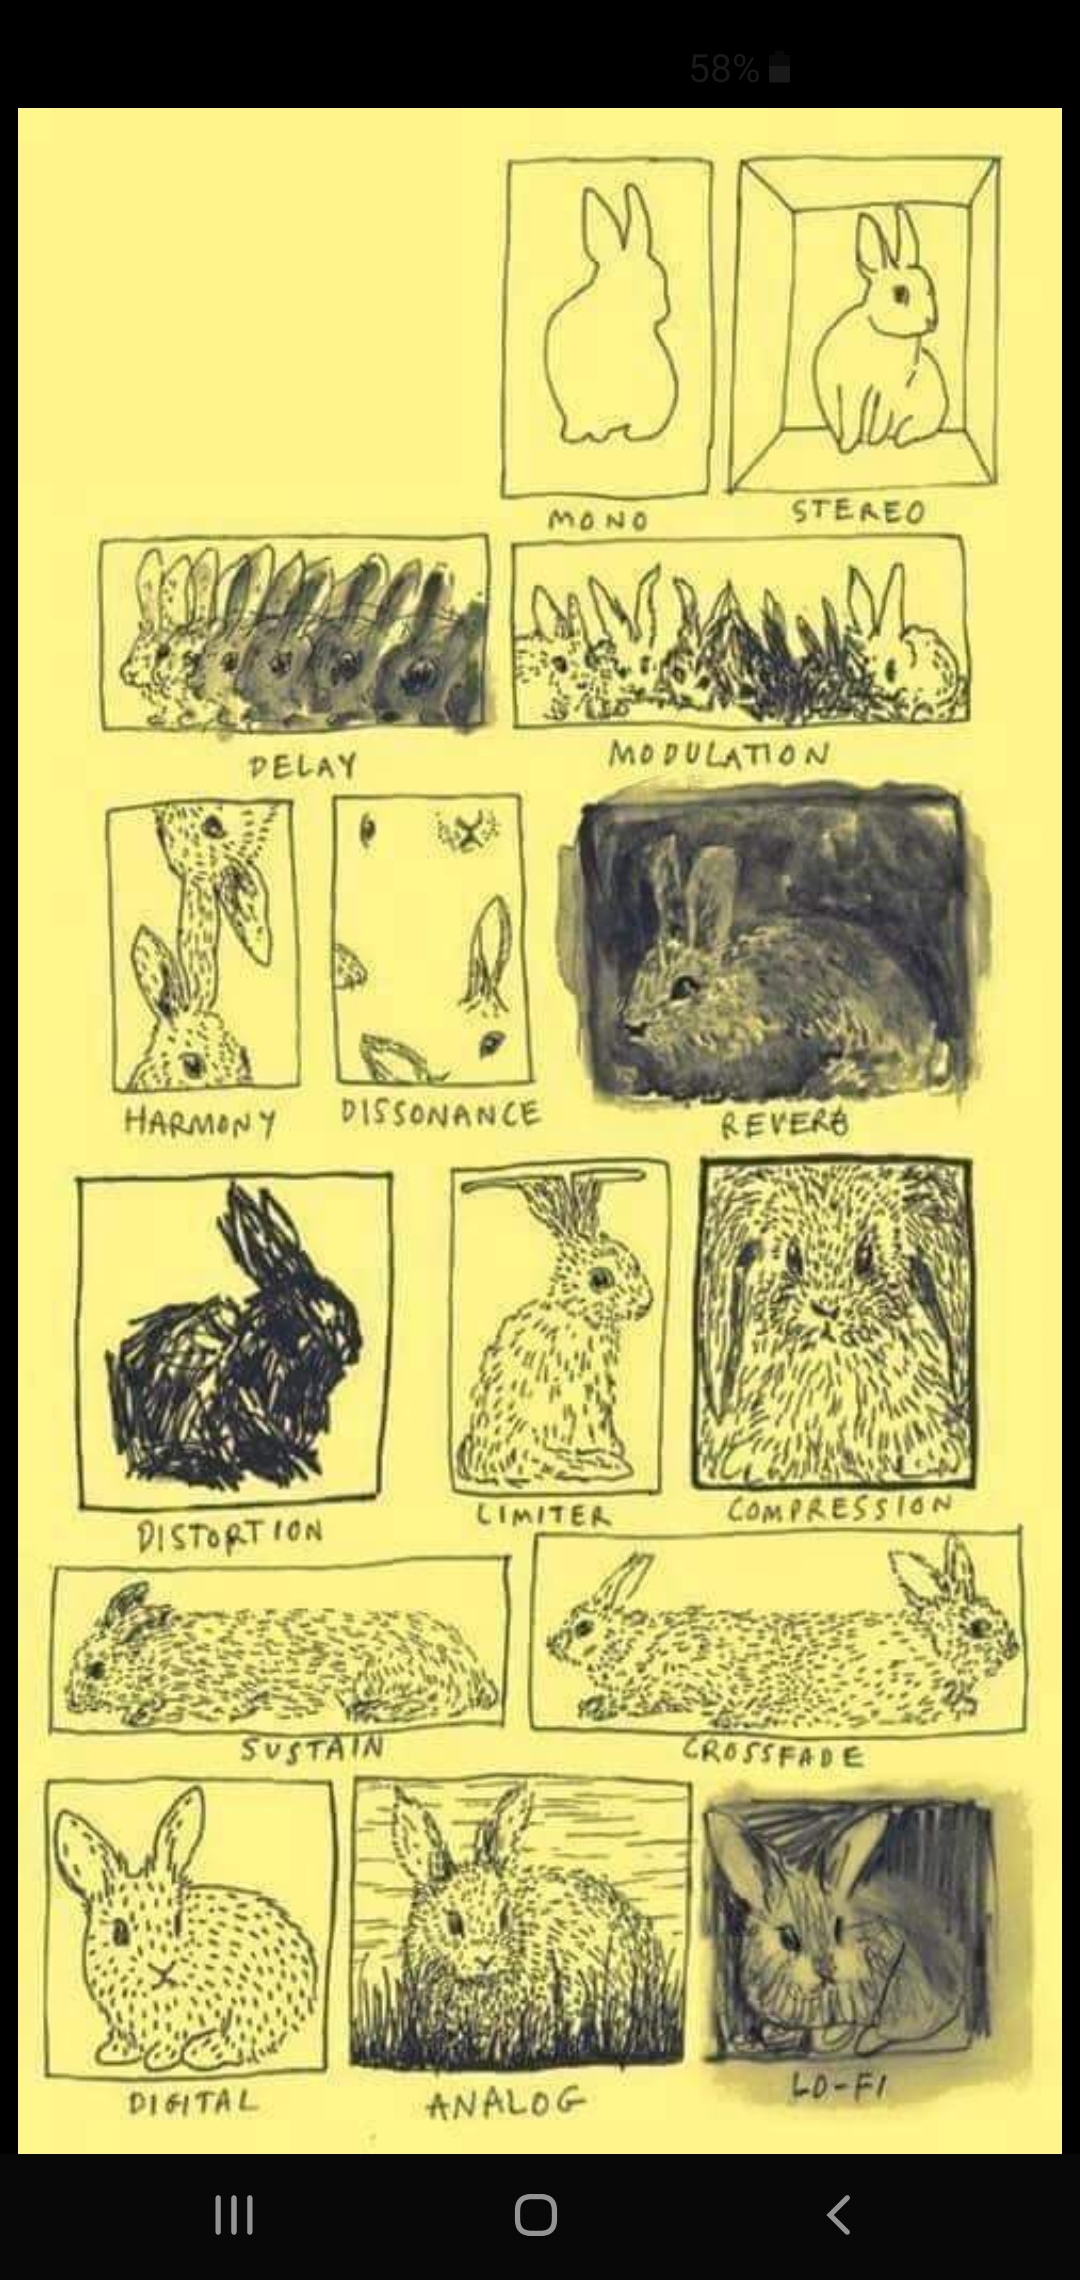 58%
MONO
STEREO
DELAY
MODULATION
HARMONY
DISSONANCE
REVERB
DISTORTION
LIMITER
COMPRESSION
SUSTAIN
CROSSFADE
DIGITAL
ANALOG
LO-FI